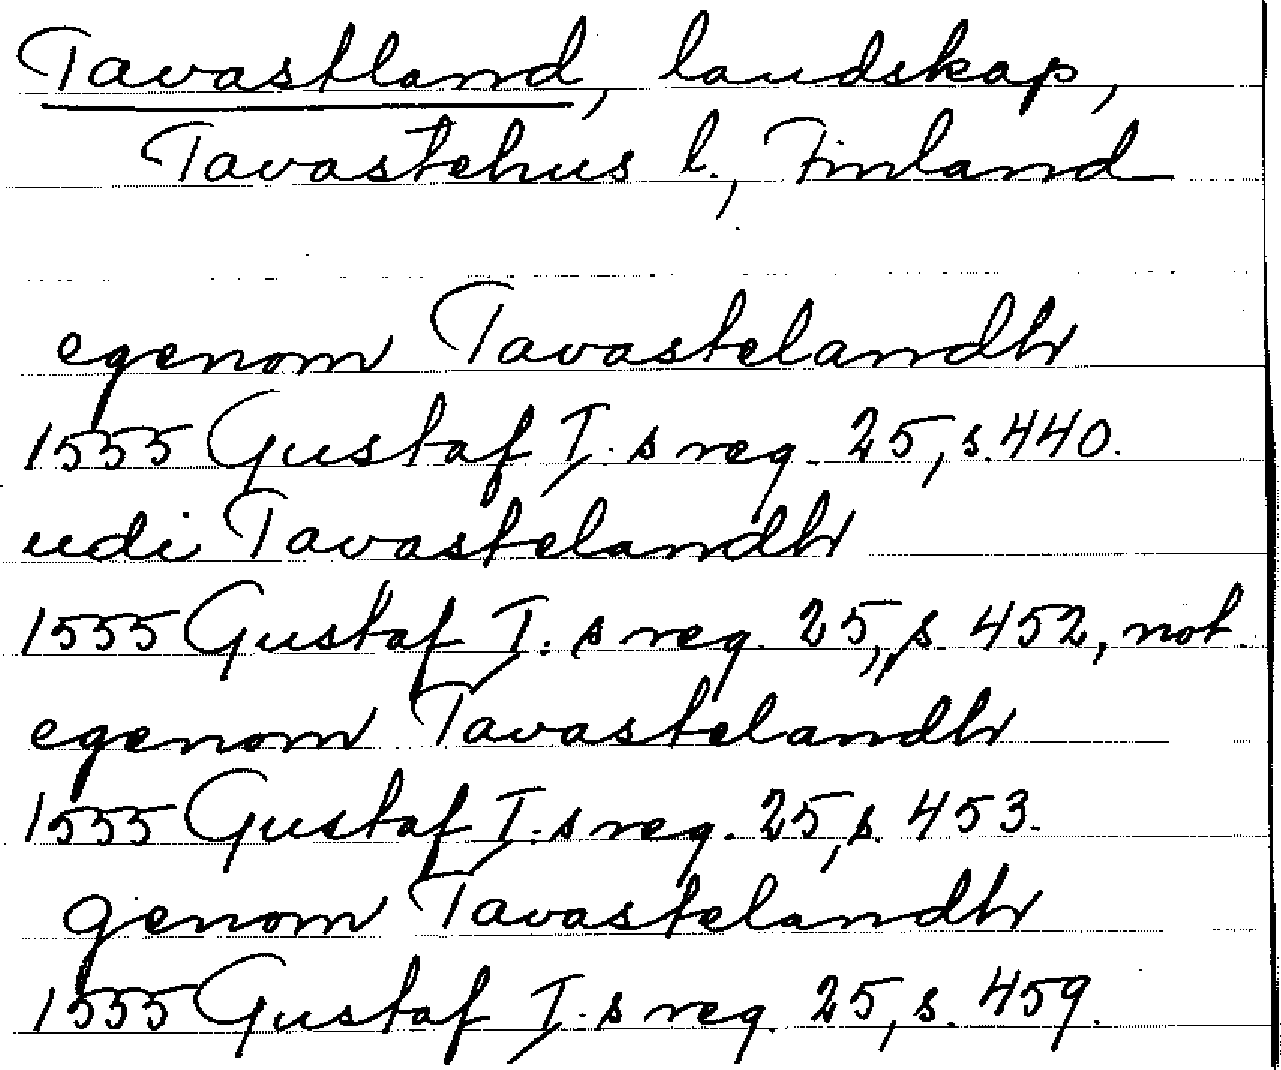 Tavastland, landskap,
Tavastehus l., Finland
egenom Tavastelandh
1555 Gustaf I:s reg. 25, s. 440.
udi Tavastelandh
1555 Gustaf I:s reg. 25, s. 452, not.
egenom Tavastelandh
1555 Gustaf I:s reg. 25, s. 453.
genom Tavastelandh
1555 Gustaf I:s reg. 25, s. 459.